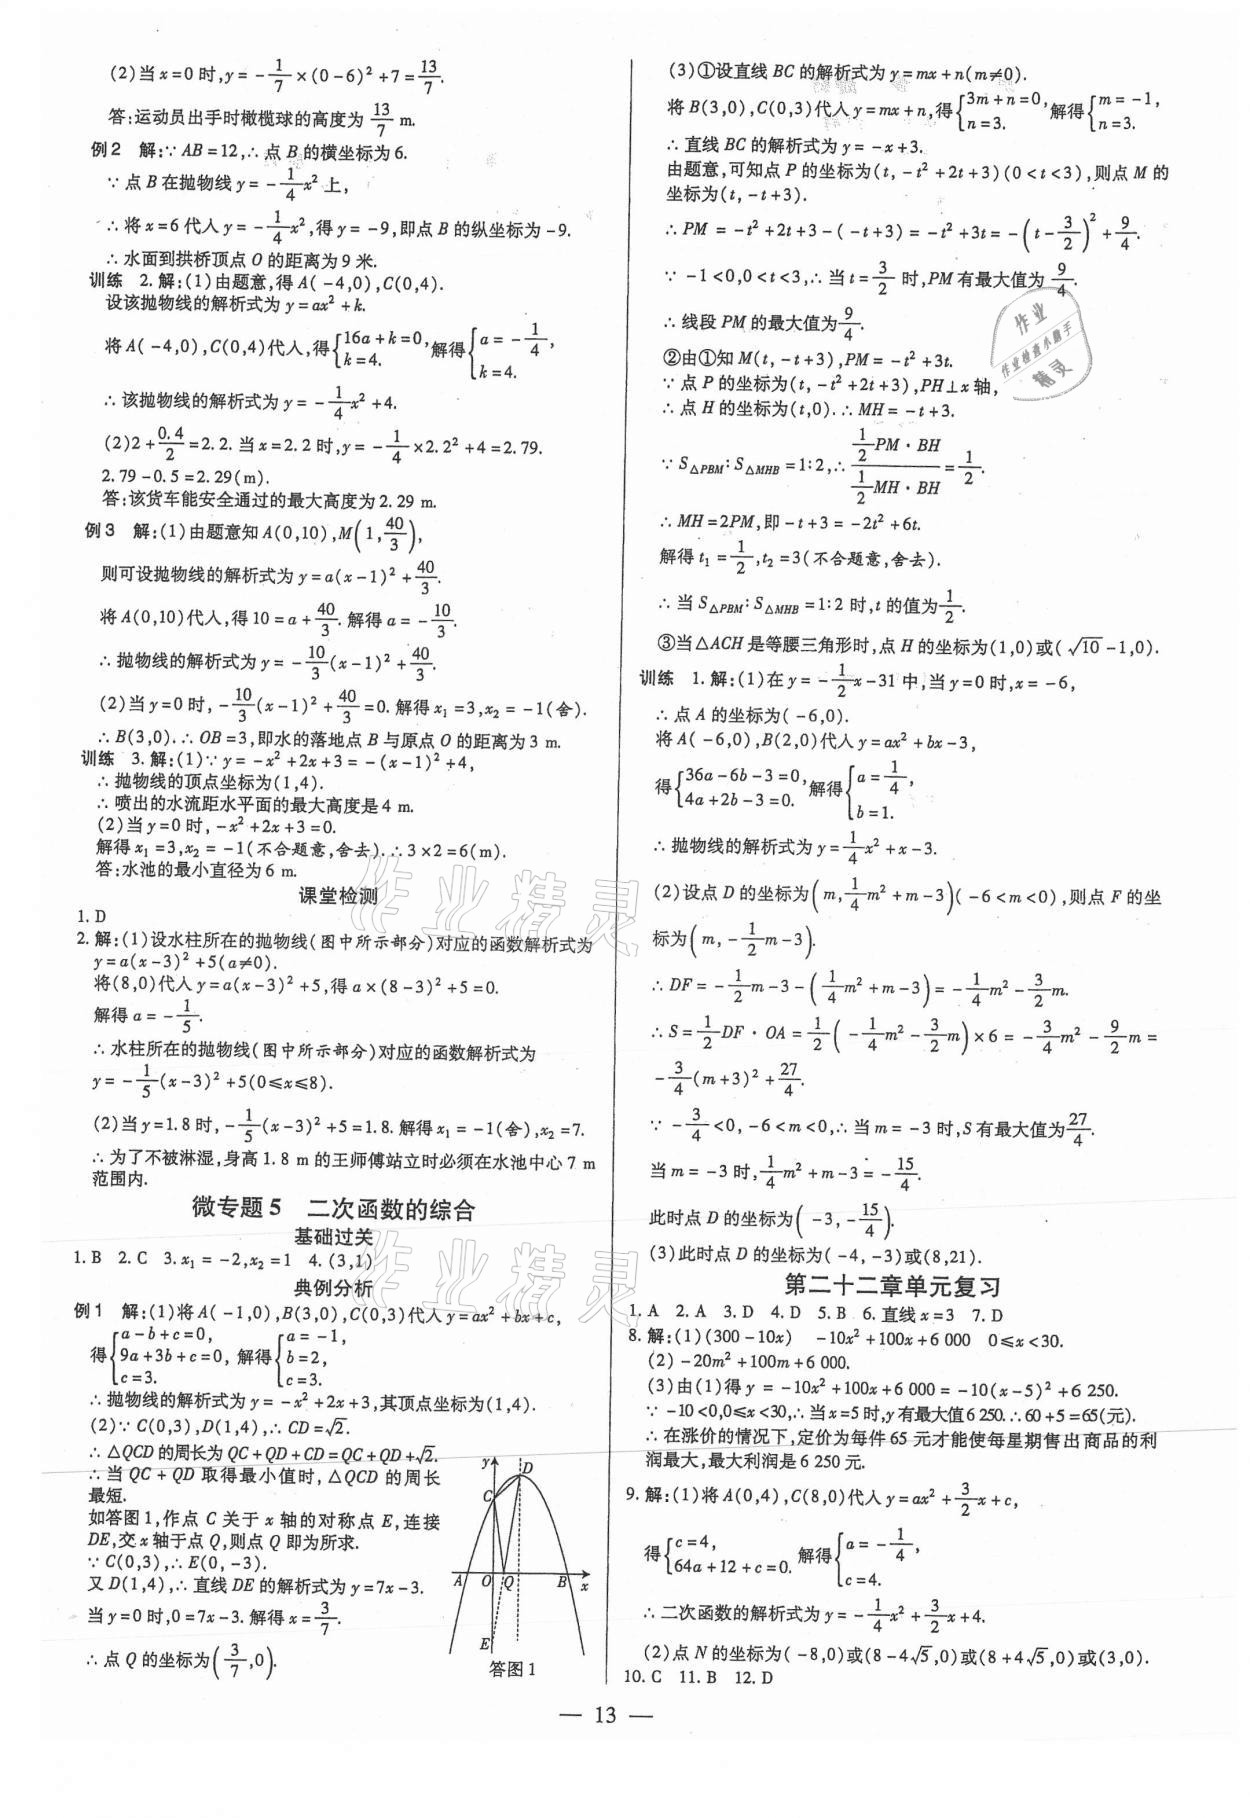 (2)当x=0时,y=-1/7×(0-6)²+7=13/7.
答:运动员出手时橄榄球的高度为13/7 m.
例2 解:∵AB=12,∴点B的横坐标为6.
∵点B在抛物线y=-1/4x²上,
∴将x=6代人y=-1/4x²,得y=-9,即点B的纵坐标为-9.
∴水面到拱桥顶点O的距离为9米.
训练 2.解:(1)由题意,得A(-4,0),C(0,4).
设该抛物线的解析式为y=ax²+k.
将A(-4,0),C(0,4)代人,得{16a+k=0, k=4. 解得{a=-1/4, k=4.
∴该抛物线的解析式为y=-1/4x²+4.
(2)2+0.4/2=2.2.当x=2.2时,y=-1/4×2.2²+4=2.79.
2.79-0.5=2.29(m).
答:该货车能安全通过的最大高度为2.29 m.
例3 解:(1)由题意知A(0,10),M(1,40/3),
则可设抛物线的解析式为y=a(x-1)²+40/3.
将A(0,10)代人,得10=a+40/3.解得a=-10/3.
∴抛物线的解析式为y=-10/3(x-1)²+40/3.
(2)当y=0时,-10/3(x-1)²+40/3=0.解得x₁=3,x₂=-1(舍).
∴B(3,0).∴OB=3,即水的落地点B与原点O的距离为3 m.
训练 3.解:(1)∵y=-x²+2x+3=-(x-1)²+4,
∴抛物线的顶点坐标为(1,4).
∴喷出的水流距水平面的最大高度是4 m.
(2)当y=0时,-x²+2x+3=0.
解得x₁=3,x₂=-1(不合题意,舍去).∴3×2=6(m).
答:水池的最小直径为6 m.
课堂检测
1.D
2.解:(1)设水柱所在的抛物线(图中所示部分)对应的函数解析式为
y=a(x-3)²+5(a≠0).
将(8,0)代人y=a(x-3)²+5,得a×(8-3)²+5=0.
解得a=-1/5.
∴水柱所在的抛物线(图中所示部分)对应的函数解析式为
y=-1/5(x-3)²+5(0≤x≤8).
(2)当y=1.8时,-1/5(x-3)²+5=1.8.解得x₁=-1(舍),x₂=7.
∴为了不被淋湿,身高1.8 m的王师傅站立时必须在水池中心7 m
范围内.
微专题5 二次函数的综合
基础过关
1.B 2.C 3.x₁=-2,x₂=1 4.(3,1)
典例分析
例1 解:(1)将A(-1,0),B(3,0),C(0,3)代人y=ax²+bx+c,
得{a-b+c=0, 9a+3b+c=0, c=3. 解得{a=-1, b=2, c=3.
∴抛物线的解析式为y=-x²+2x+3,其顶点坐标为(1,4).
(2)∵C(0,3),D(1,4),∴CD=√2.
∴△QCD的周长为QC+QD+CD=QC+QD+√2.
∴当QC+QD取得最小值时,△QCD的周长
最短.
如答图1,作点C关于x轴的对称点E,连接
DE,交x轴于点Q,则点Q即为所求.
∵C(0,3),∴E(0,-3).
又D(1,4),∴直线DE的解析式为y=7x-3.
当y=0时,0=7x-3.解得x=3/7.
∴点Q的坐标为(3/7,0).
y
D
C
A O Q B x
E
答图1
(3)①设直线BC的解析式为y=mx+n(m≠0).
将B(3,0),C(0,3)代人y=mx+n,得{3m+n=0, n=3. 解得{m=-1, n=3.
∴直线BC的解析式为y=-x+3.
由题意,可知点P的坐标为(t,-t²+2t+3)(0<t<3),则点M的
坐标为(t,-t+3).
∴PM=-t²+2t+3-(-t+3)=-t²+3t=-(t-3/2)²+9/4.
∵-1<0,0<t<3,∴当t=3/2时,PM有最大值为9/4.
∴线段PM的最大值为9/4.
②由①知M(t,-t+3),PM=-t²+3t.
∵点P的坐标为(t,-t²+2t+3),PH⊥x轴,
∴点H的坐标为(t,0).∴MH=-t+3.
∵S△PBM∶S△MHB=1∶2,∴(1/2PM·BH)/(1/2MH·BH)=1/2.
∴MH=2PM,即-t+3=-2t²+6t.
解得t₁=1/2,t₂=3(不合题意,舍去).
∴当S△PBM∶S△MHB=1∶2时,t的值为1/2.
③当△ACH是等腰三角形时,点H的坐标为(1,0)或(√10-1,0).
训练 1.解:(1)在y=-1/2x-31中,当y=0时,x=-6,
∴点A的坐标为(-6,0).
将A(-6,0),B(2,0)代人y=ax²+bx-3,
得{36a-6b-3=0, 4a+2b-3=0. 解得{a=1/4, b=1.
∴抛物线的解析式为y=1/4x²+x-3.
(2)设点D的坐标为(m,1/4m²+m-3)(-6<m<0),则点F的坐
标为(m,-1/2m-3).
∴DF=-1/2m-3-(1/4m²+m-3)=-1/4m²-3/2m.
∴S=1/2DF·OA=1/2(-1/4m²-3/2m)×6=-3/4m²-9/2m=
-3/4(m+3)²+27/4.
∵-3/4<0,-6<m<0,∴当m=-3时,S有最大值为27/4.
当m=-3时,1/4m²+m-3=-15/4.
此时点D的坐标为(-3,-15/4).
(3)此时点D的坐标为(-4,-3)或(8,21).
第二十二章单元复习
1.A 2.A 3.D 4.D 5.B 6.直线x=3 7.D
8.解:(1)(300-10x) -10x²+100x+6 000 0≤x<30.
(2)-20m²+100m+6 000.
(3)由(1)得y=-10x²+100x+6 000=-10(x-5)²+6 250.
∵-10<0,0≤x<30,∴当x=5时,y有最大值6 250.∴60+5=65(元).
∴在涨价的情况下,定价为每件65元才能使每星期售出商品的利
润最大,最大利润是6 250元.
9.解:(1)将A(0,4),C(8,0)代人y=ax²+3/2x+c,
得{c=4, 64a+12+c=0. 解得{a=-1/4, c=4.
∴二次函数的解析式为y=-1/4x²+3/2x+4.
(2)点N的坐标为(-8,0)或(8-4√5,0)或(8+4√5,0)或(3,0).
10.C 11.B 12.D
— 13 —
作业
作业检查小助手
精灵
作业精灵
作业精灵